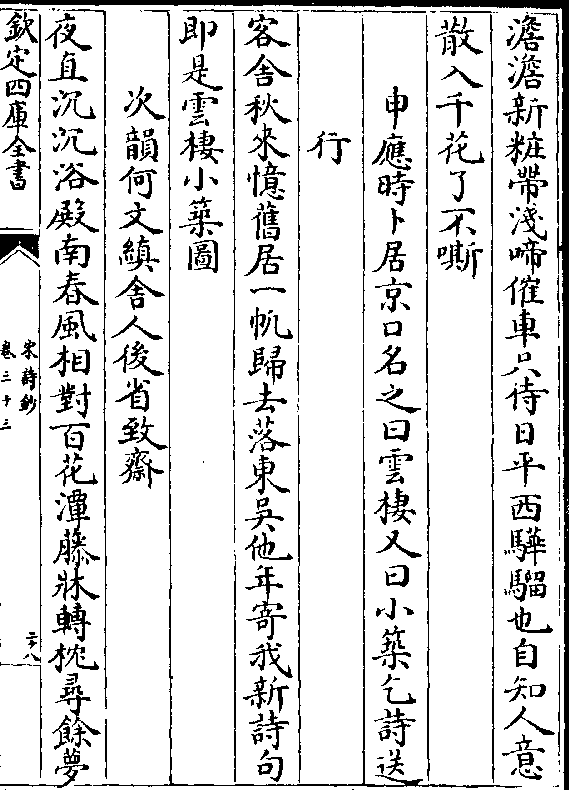 澹澹新粧帶淺啼催車只待日平西驊騮也自知人意
散入千花了不嘶
申應時卜居京口名之曰雲棲又曰小築乞詩送
行
客舍秋來憶舊居一帆歸去落東吳他年寄我新詩句
即是雲棲小築圖
次韻何文縝舍人後省致齋
夜直沉沉浴殿南春風相對百花潭藤牀轉枕尋餘夢
欽定四庫全書
宋詩鈔
卷三十三
二十八